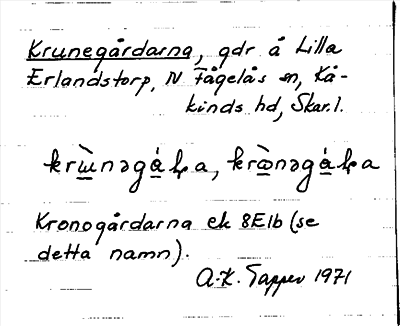 Krunegårdarna, gdr å Lilla
Erlandstorp, N Fågelås sn, Kå-
kinds hd, Skar.l.
krɯ̀nəgáɽa, krɷ̀nəgáɽa
Kronogårdarna ek 8E1b (se
detta namn).
A-K. Tapper 1971